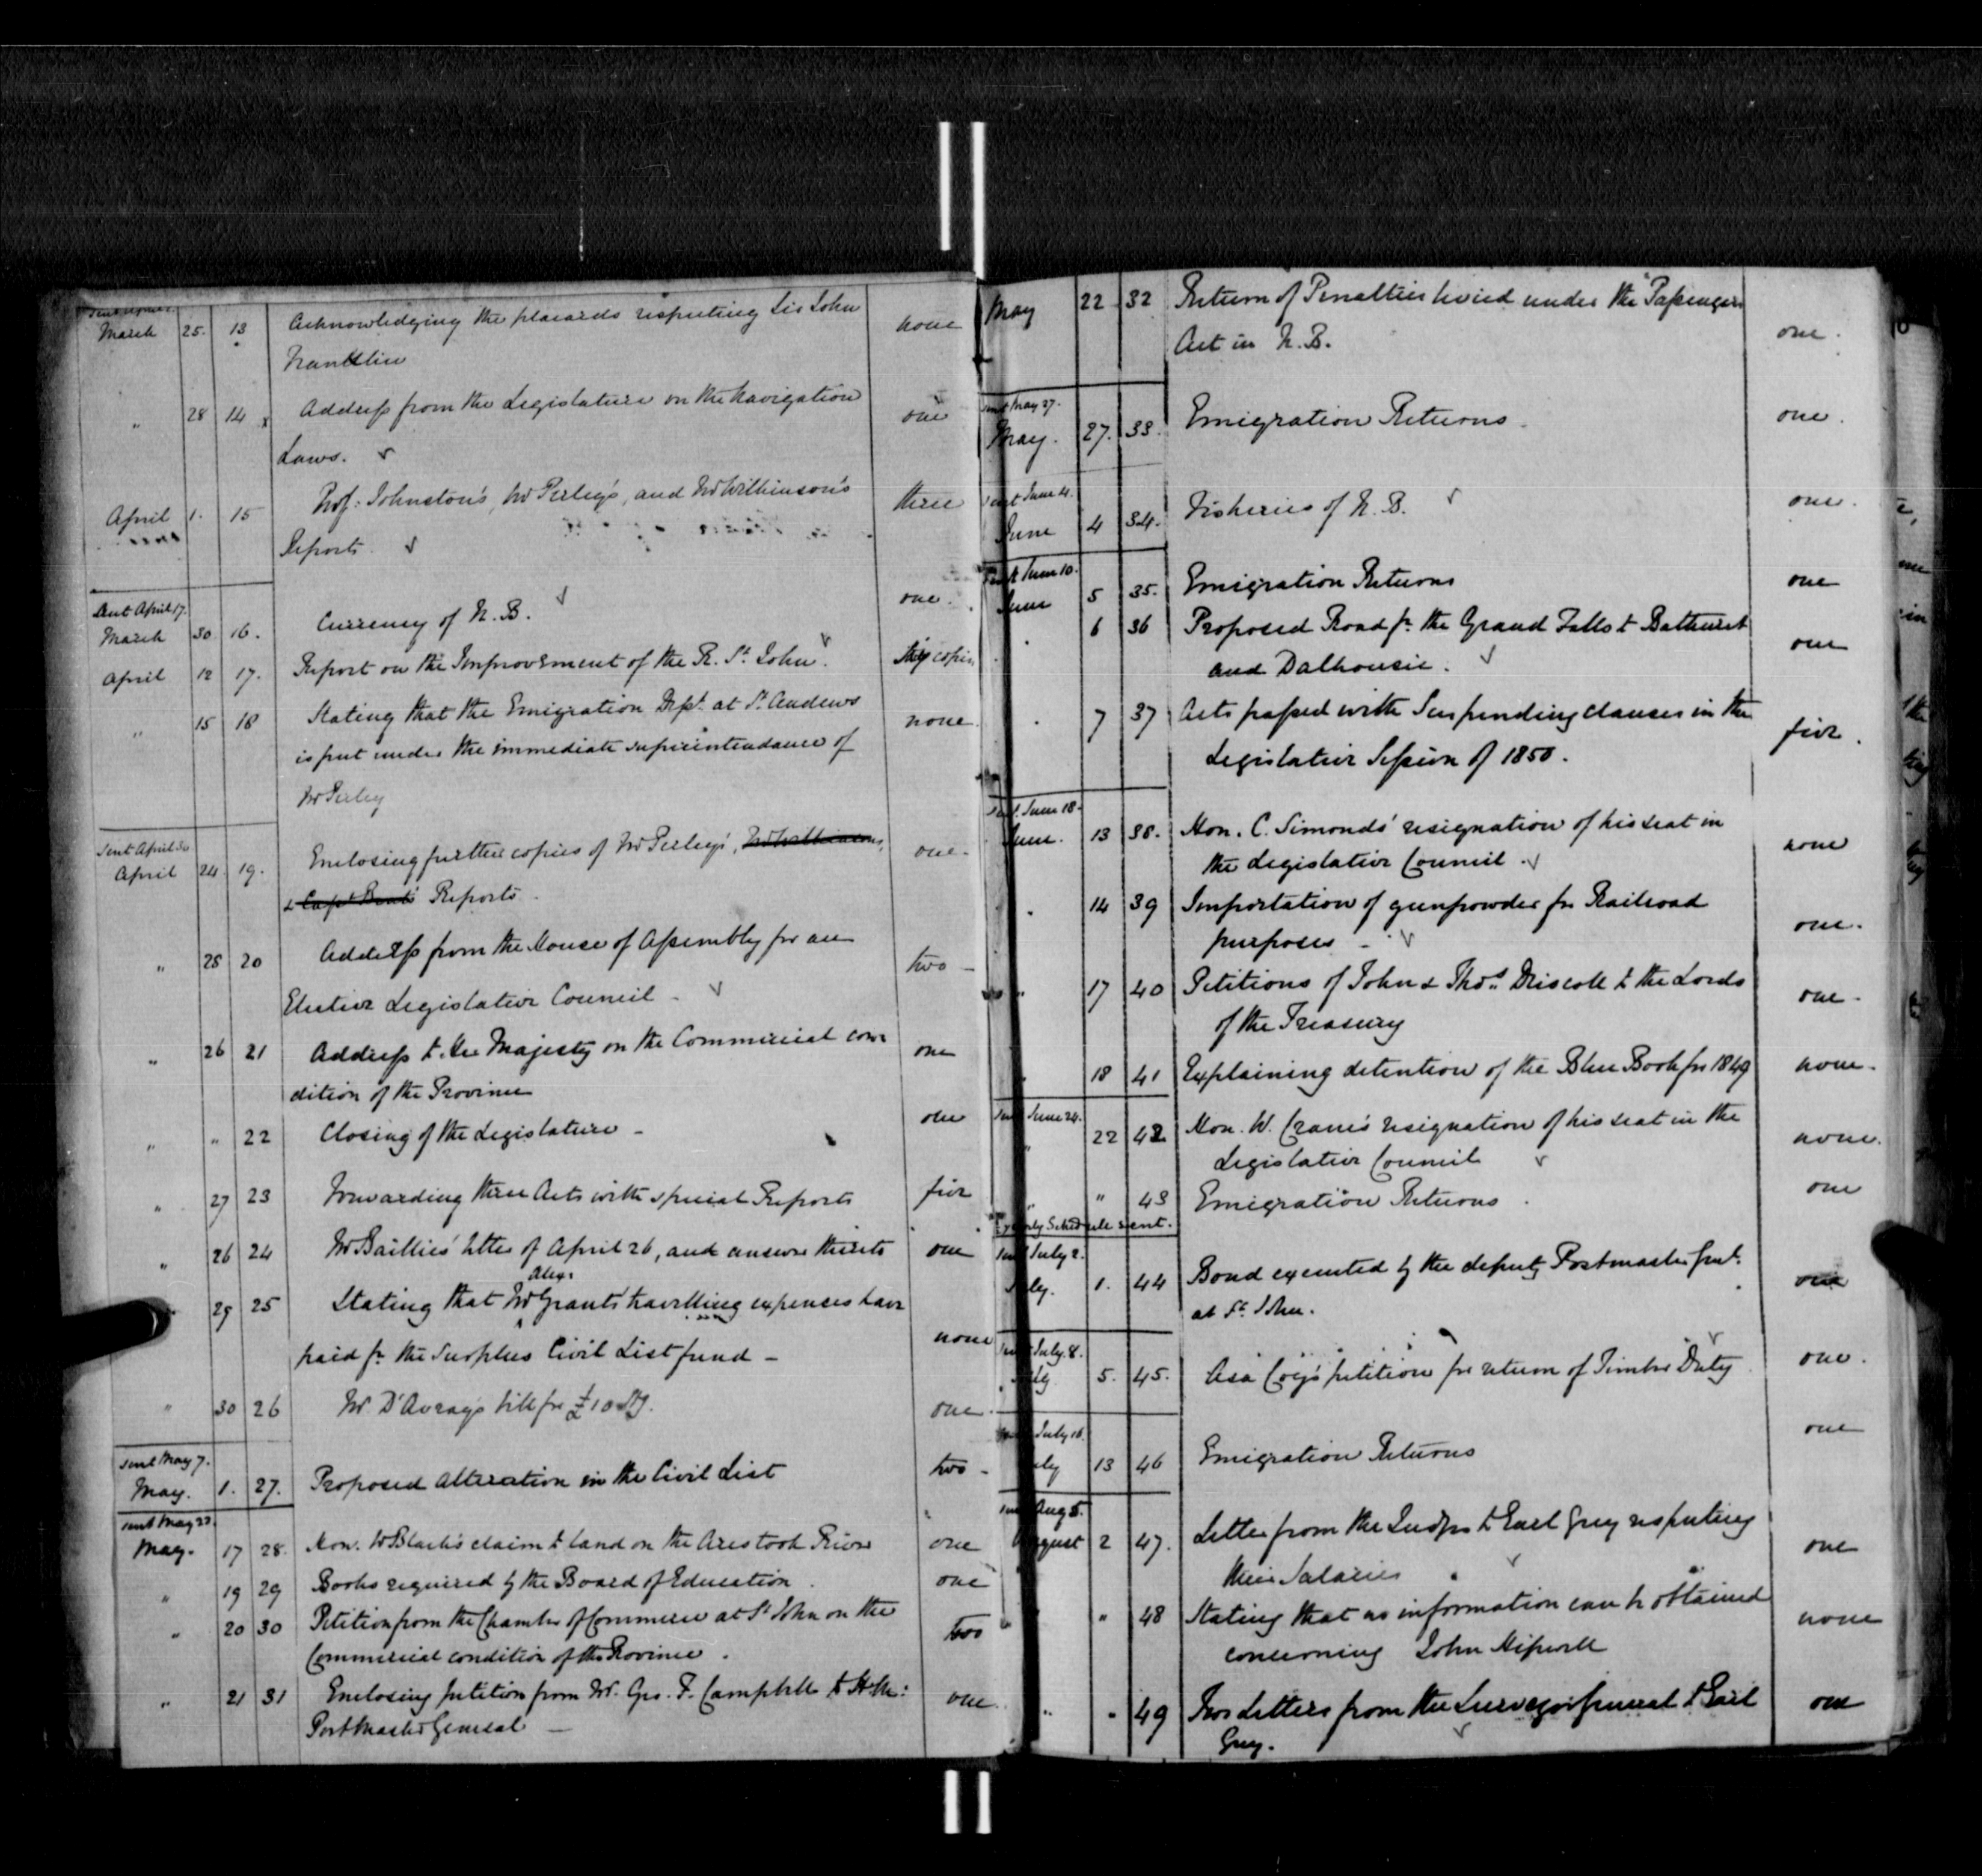 Sent April 2
March 25. 13 Acknowledging the placards respecting Sir John none
Franklin
" 28 14 x Address from the Legislature on the Navigation one
Laws.
April 1. 15 Prof: Johnston's, Mr Perley's, and Mr Wilkinson's three
Reports
Sent April 17.
March 30 16. Currency of N. B. one.
April 12 17. Report on the Improvement of the R. St. John. copies
" 15 18 Stating that the Emigration Dept. at St. Andrews none
is put under the immediate superintendance of
Mr Perley
Sent April 30
April 24. 19. Enclosing further copies of Mr Perley's, Mr Wilkinson's, one.
& Capt Reports.
" 25 20 Address from the House of Assembly for an two
Elective Legislative Council -
" 26 21 Address to Her Majesty on the Commercial con- one
dition of the Province
" " 22 Closing of the Legislature - one
" 27 23 Forwarding three Acts with special Reports five
" 26 24 Mr Baillie's letter of April 26, and answer thereto one
Alex.
29 25 Stating that Mr Grant's travelling expenses have none
paid fr. the Surplus Civil List fund -
" 30 26 Mr. D'Avray's bill for £10 Stg. one.
Sent May 7.
May. 1. 27. Proposed Alteration in the Civil List two -
Sent May 22.
May. 17 28. Hon. Mr Black's claim to land on the Arestook River one
" 19 29 Books required by the Board of Education one
" 20 30 Petition from the Chamber of Commerce at St John on the two
Commercial condition of the Province.
" 21 31 Enclosing petition from Mr. Geo. F. Campbell to H.M: one
Postmaster General -
May 22 32 Return of Penalties levied under the Passengers one.
Act in N. B.
Sent May 27.
May. 27. 33. Emigration Returns. one.
Sent June 4.
June 4 34. Fisheries of N. B. one.
Sent June 10.
June 5 35. Emigration Returns one
6 36 Proposed Road fr. the Grand Falls to Bathurst one
and Dalhousie.
7 37 Acts passed with Suspending clauses in the five.
Legislative Session of 1850.
Sent June 18.
June. 13 38. Hon. C. Simonds' resignation of his seat in none
the Legislative Council.
" 14 39 Importation of gunpowder for Railroad one.
purposes -
" 17 40 Petitions of John & Thos. Driscoll to the Lords one.
of the Treasury
" 18 41 Explaining detention of the Blue Book for 1849 none.
Sent June 24.
" 22 42 Hon. W. Crane's resignation of his seat in the none.
Legislative Council
" " 43 Emigration Returns. one
Schedule sent.
Sent July 2.
July. 1. 44 Bond executed by the deputy Postmaster Genl. one
at St. John.
Sent July 8.
July 5. 45. Asa Coy's petition for return of Timber Duty one.
Sent July 16.
July 13 46 Emigration Returns one
Sent Aug 5.
August 2 47. Letter from the Judges to Earl Grey respecting one
their Salaries
" " 48 Stating that no information can be obtained none
concerning John Hipwell
" " 49 Two Letters from the Surveyor General to Earl one
Grey.